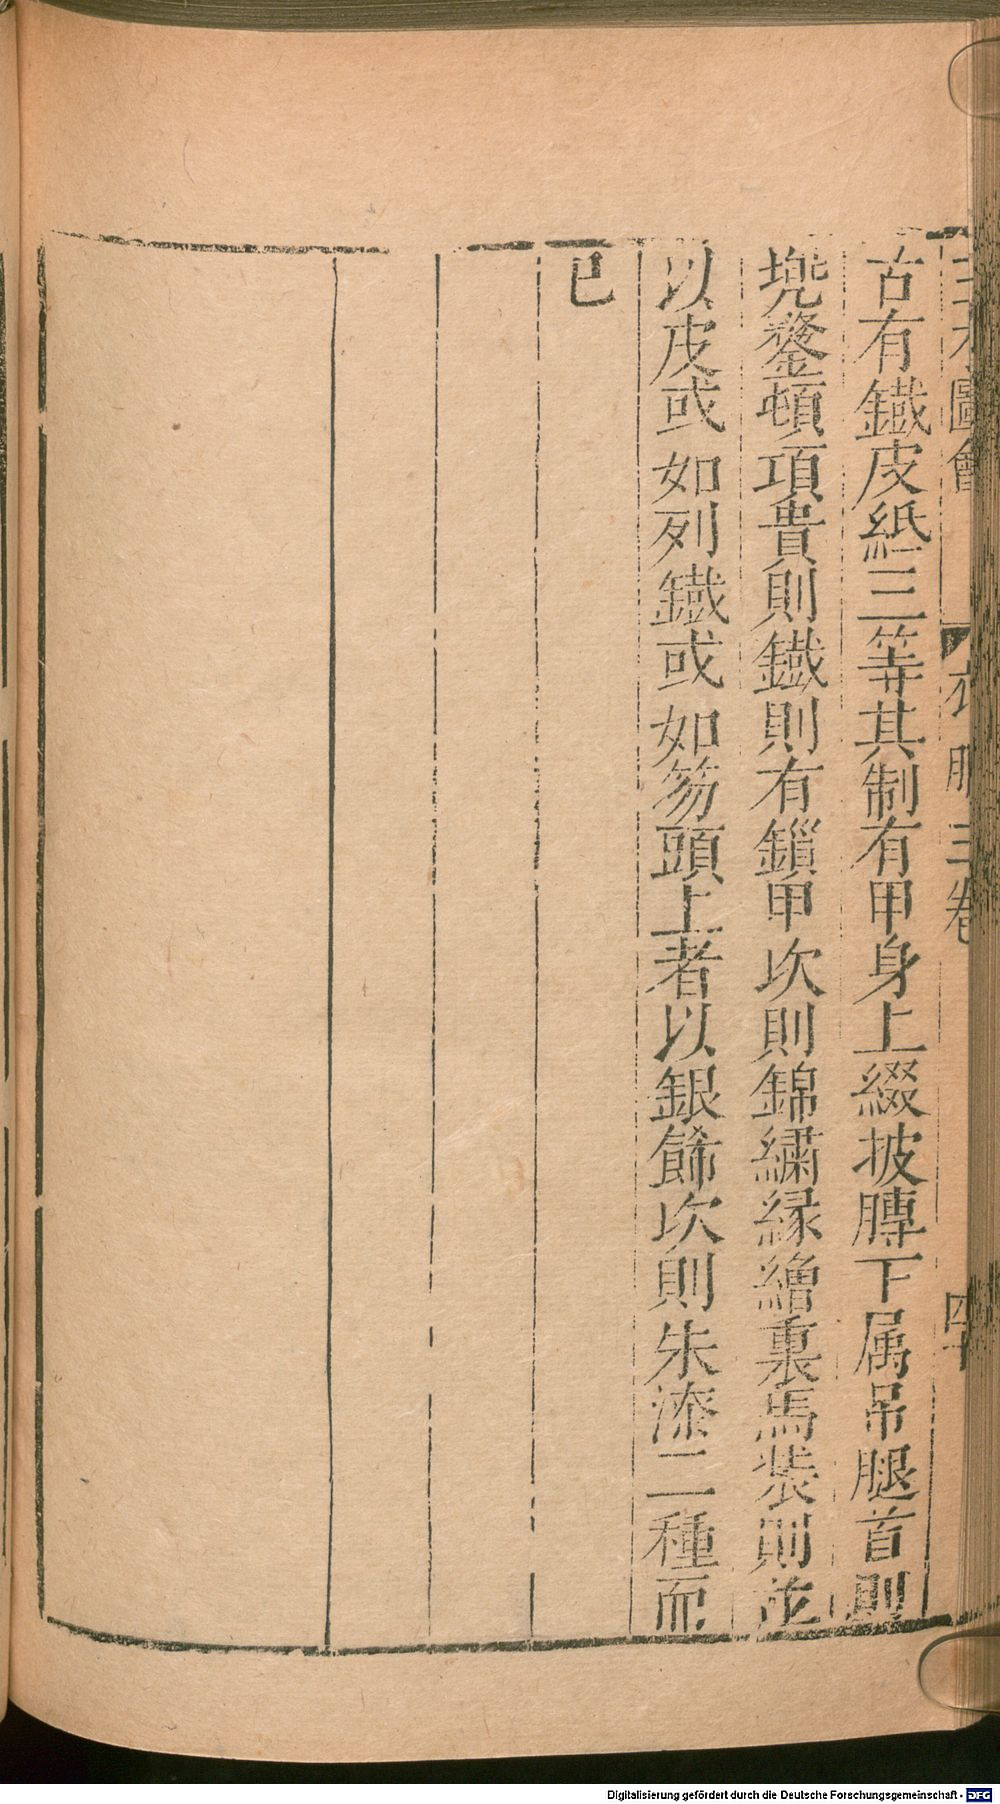 三才圖會 衣服三卷 四十
古有鐵皮紙三等其制有甲身上綴披膊下属吊腿首則
兠鍪頓項貴則鐵則有鎻甲次則錦繡縁繒裏馬裝則並
以皮或如列鐵或如笏頭上者以銀餙次則朱漆二種而
已
Digitalisierung gefördert durch die Deutsche Forschungsgemeinschaft - DFG